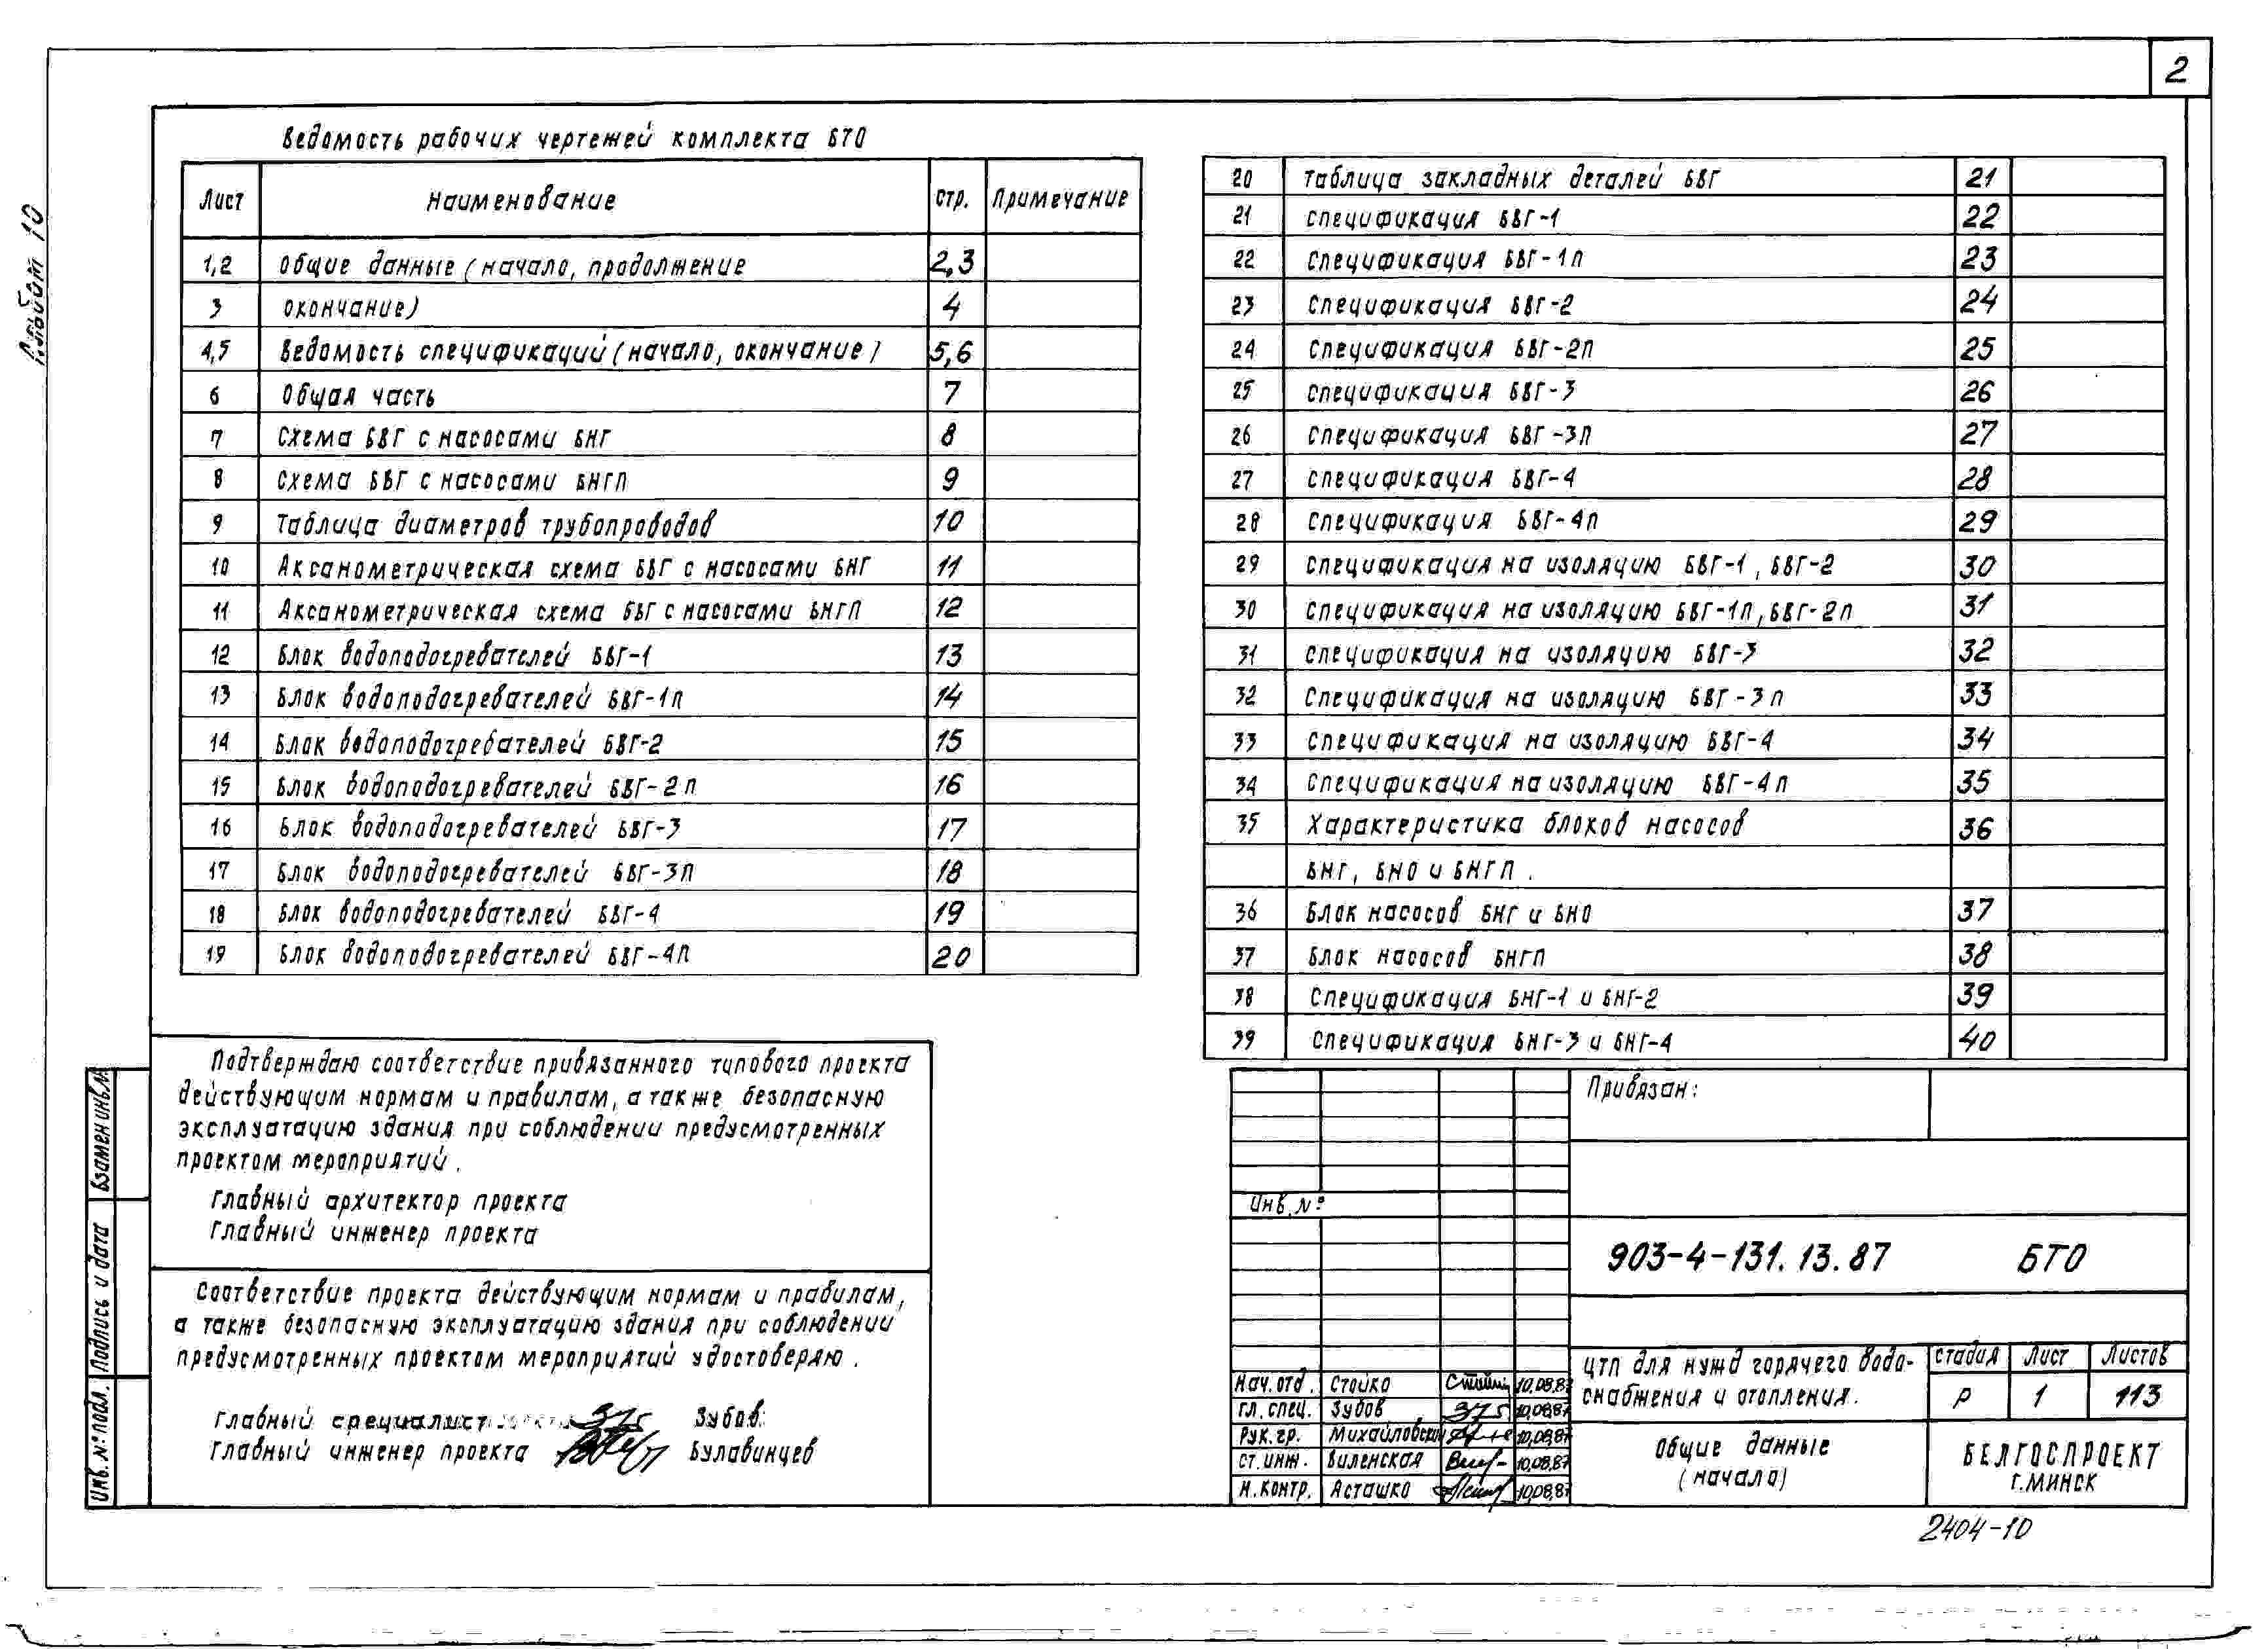 2
Альбом 10
Ведомость рабочих чертежей комплекта БТО
Лист Наименование Стр. Примечание
1,2 Общие данные (начало, продолжение 2,3
3 окончание) 4
4,5 Ведомость спецификаций (начало, окончание) 5,6
6 Общая часть 7
7 Схема БВГ с насосами БНГ 8
8 Схема БВГ с насосами БНГП 9
9 Таблица диаметров трубопроводов 10
10 Аксанометрическая схема БВГ с насосами БНГ 11
11 Аксанометрическая схема БВГ с насосами БНГП 12
12 Блок водоподогревателей БВГ-1 13
13 Блок водоподогревателей БВГ-1П 14
14 Блок водоподогревателей БВГ-2 15
15 Блок водоподогревателей БВГ-2П 16
16 Блок водоподогревателей БВГ-3 17
17 Блок водоподогревателей БВГ-3П 18
18 Блок водоподогревателей БВГ-4 19
19 Блок водоподогревателей БВГ-4П 20
20 Таблица закладных деталей БВГ 21
21 Спецификация БВГ-1 22
22 Спецификация БВГ-1П 23
23 Спецификация БВГ-2 24
24 Спецификация БВГ-2П 25
25 Спецификация БВГ-3 26
26 Спецификация БВГ-3П 27
27 Спецификация БВГ-4 28
28 Спецификация БВГ-4П 29
29 Спецификация на изоляцию БВГ-1, БВГ-2 30
30 Спецификация на изоляцию БВГ-1П, БВГ-2П 31
31 Спецификация на изоляцию БВГ-3 32
32 Спецификация на изоляцию БВГ-3П 33
33 Спецификация на изоляцию БВГ-4 34
34 Спецификация на изоляцию БВГ-4П 35
35 Характеристика блоков насосов 36
БНГ, БНО и БНГП.
36 Блок насосов БНГ и БНО 37
37 Блок насосов БНГП 38
38 Спецификация БНГ-1 и БНГ-2 39
39 Спецификация БНГ-3 и БНГ-4 40
Подтверждаю соответствие привязанного типового проекта
действующим нормам и правилам, а также безопасную
эксплуатацию здания при соблюдении предусмотренных
проектом мероприятий.
Главный архитектор проекта
Главный инженер проекта
Соответствие проекта действующим нормам и правилам,
а также безопасную эксплуатацию здания при соблюдении
предусмотренных проектом мероприятий удостоверяю.
Главный специалист Зубов
Главный инженер проекта Булавинцев
Взамен инв.№
Подпись и дата
Инв. № подл.
Привязан:
Инв. №
903-4-131.13.87 БТО
ЦТП для нужд горячего водо-
снабжения и отопления.
Стадия Лист Листов
Р 1 113
Общие данные
(начало)
БЕЛГОСПРОЕКТ
г. МИНСК
Нач. отд. Стойко 10.08.87
Гл. спец. Зубов 10.08.87
Рук. гр. Михайловский 10.08.87
Ст. инж. Виленская 10.08.87
Н. контр. Асташко 10.08.87
2404-10